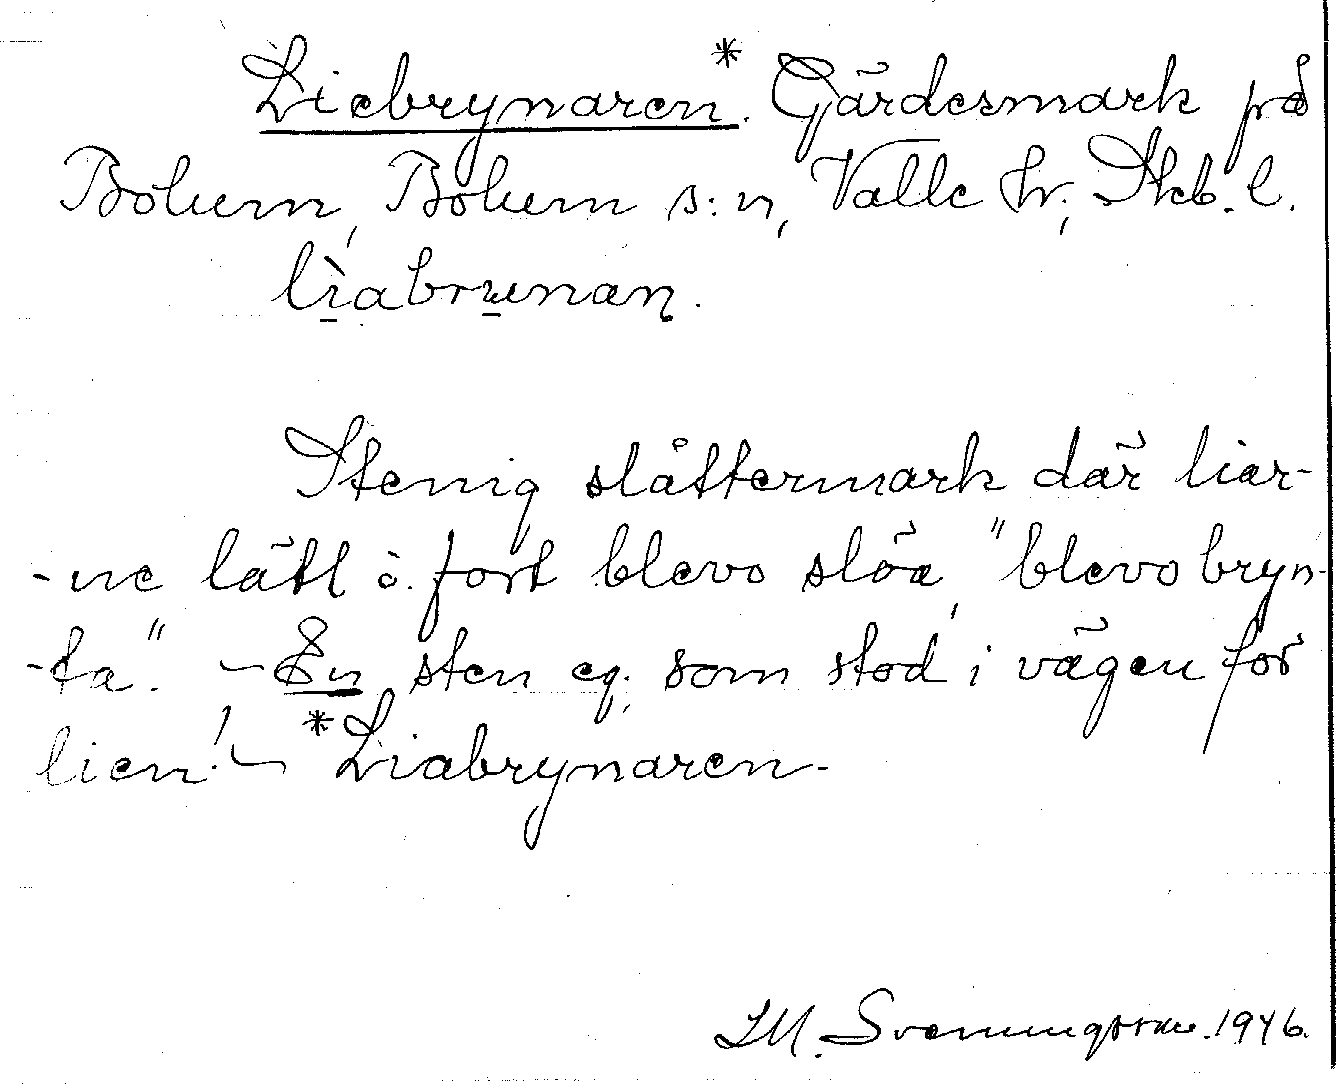 Liebrynaren.* Gärdesmark på
Bolum, Bolum s:n, Valle hr, Skb. l.
lìabrunan.
Stenig slåttermark där liar-
-ne lätt o. fort blevo slöa, "blevo bryn-
-ta". - En sten eg. som stod i vägen för
lien! - *Liabrynaren.
Svenningsson. 1946.